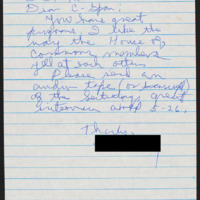 Dear C-Span;
You have great
programs. I like the
way the House of
Commons members
yell at each other.
Please send an
audio tape (or
of the Saturday, great
interview 5-26.
Thanks,